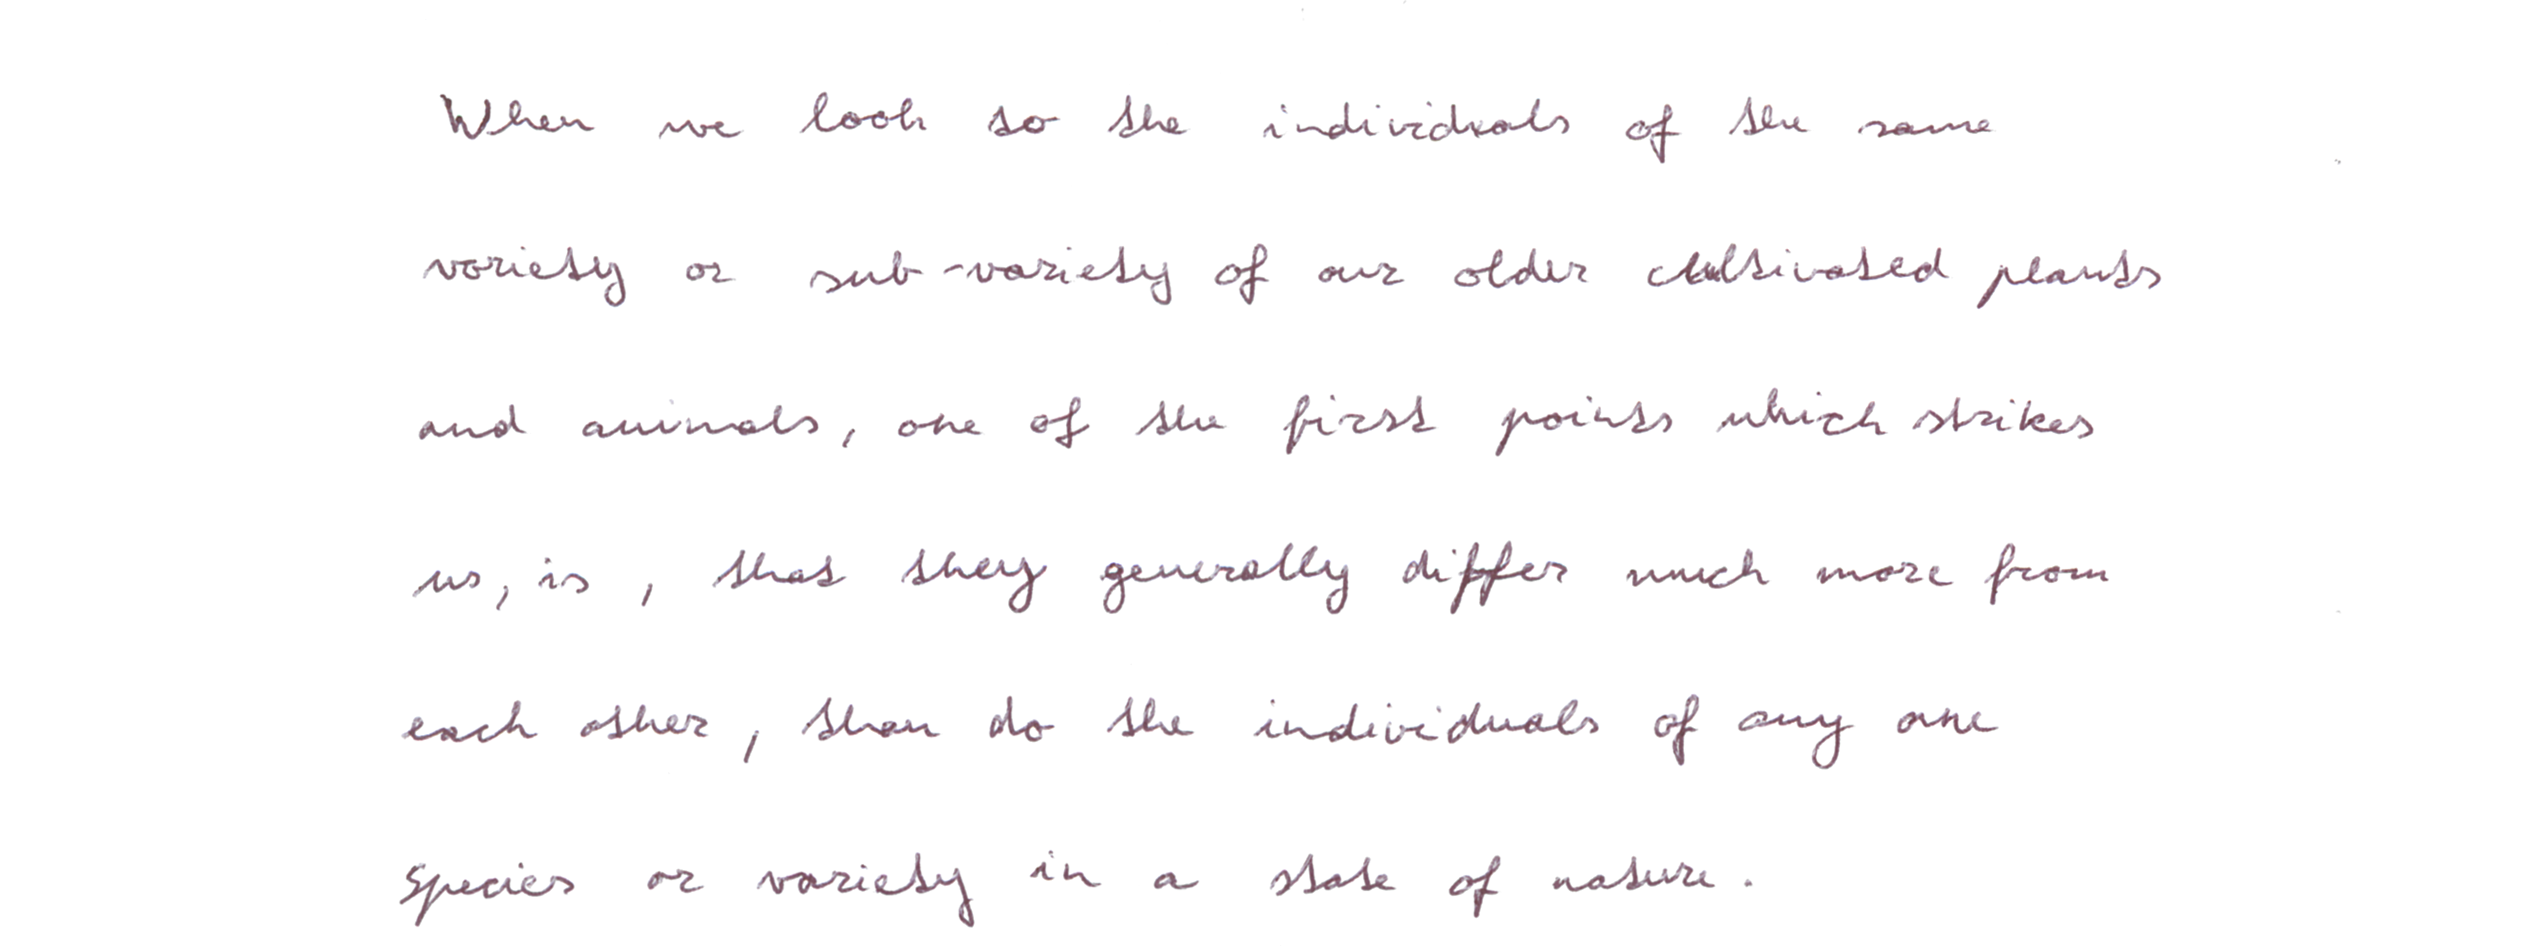 When we look to the individuals of the same
variety or sub-variety of our older cultivated plants
and animals, one of the first points which strikes
us, is, that they generally differ much more from
each other, than do the individuals of any one
species or variety in a state of nature.